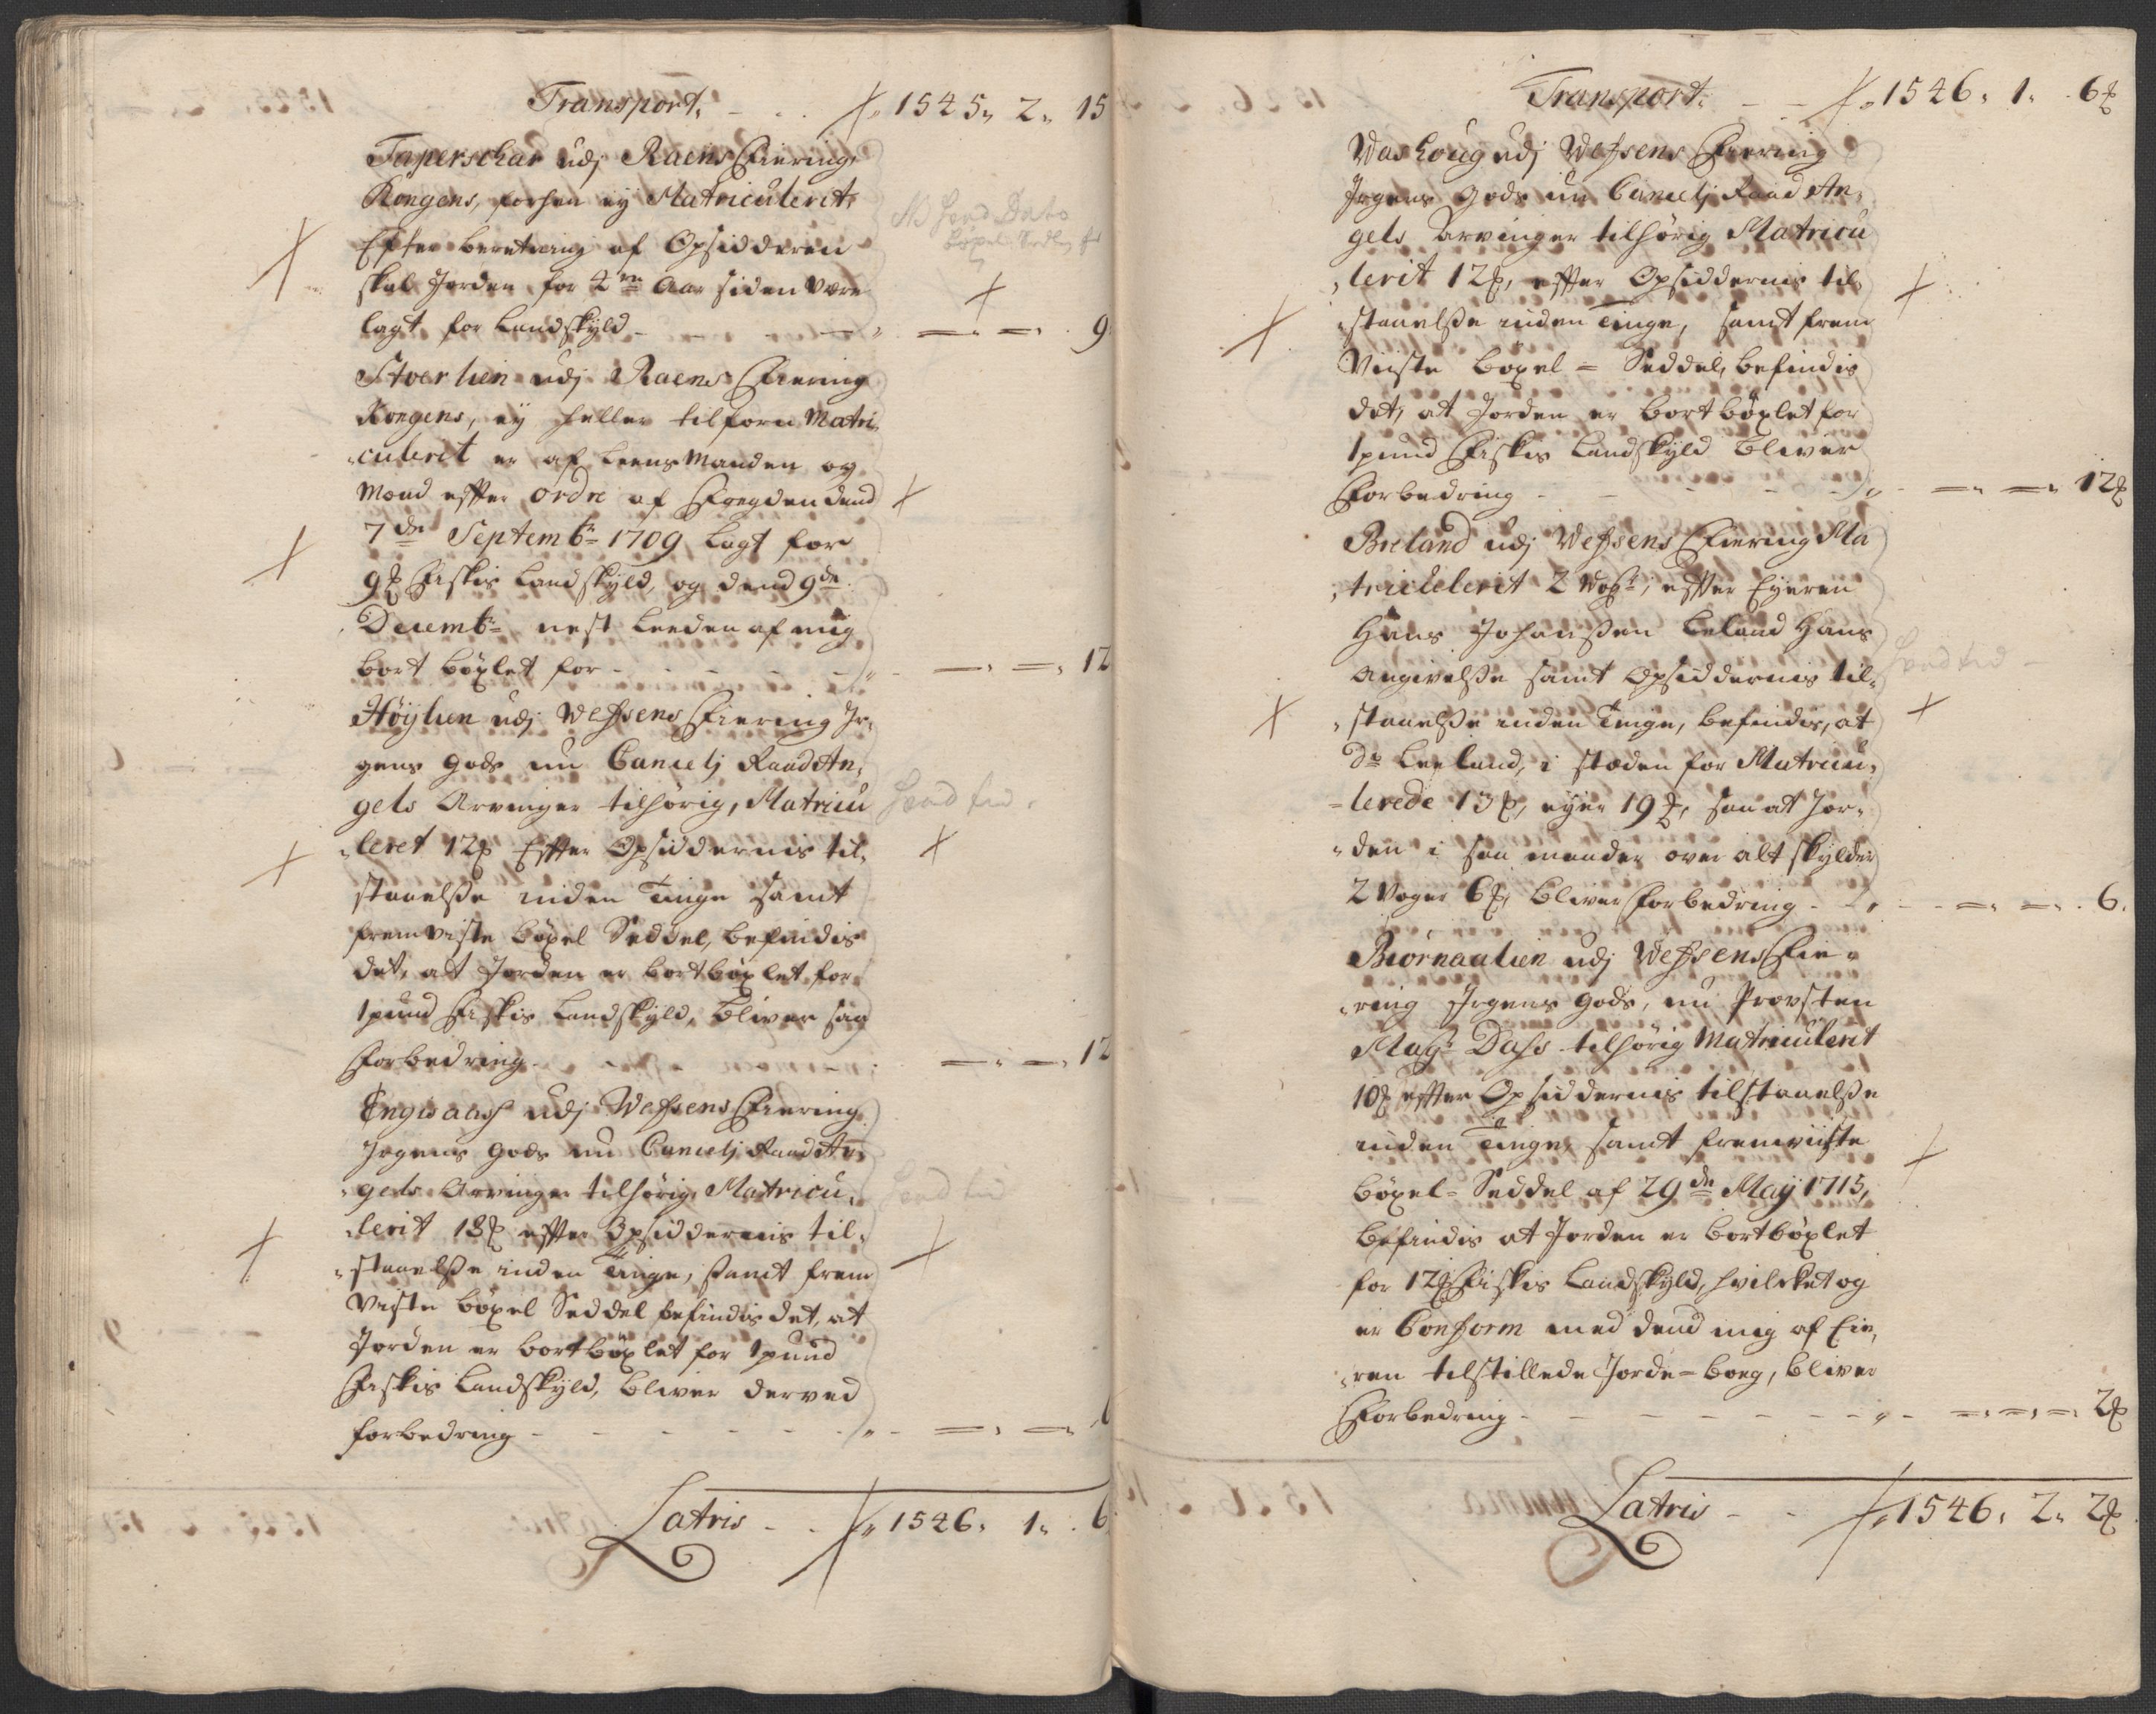 Transport, - - 1545„ 2„ 15
Taperschar udj Raens Fiering
Kongens, forhen ey Matriculerit,
Efter beretning af Opsidderen
skal Jorden for 2de Aar siden være
lagt for Landskyld - - - 9
Storlien udj Raens Fiering
Kongens, ey heller tilforn Matri„
„culerit er af Lensmanden og
Mænd efter ordre af Fogden dend
7de Septembr 1709 Lagt for
9 ℔ Fiskis Landskyld, og dend 9de
Decembr nest leeden af mig
bort böxlet for - - - 12
Höylien udj Wefsens Fiering Jr„
gens gods nu Cancelj Raad An„
gels Arvinger tilhörig, Matricu
„leret 12 ℔ Efter Opsiddernis til„
staaelse inden Tinge samt
fremviste böxel Seddel, befindis
det, at Jorden er bortböxlet for
1 pund Fiskis Landskyld, bliver saa
Forbedring - - - 12
udj Wefsens Fiering
Jrgens gods nu Cancelj Raad An„
„gels Arvinger tilhörig Matricu„
„lerit 18 ℔ efter Opsiddernis til„
„staaelse inden Tinge, samt frem
viste böxel Seddel befindis det, at
Jorden er bortböxlet for 1 pund
Fiskis Landskyld, bliver derved
forbedring - - -
Latris - - 1546„ 1„ 6
Transport, - - 1546„ 1„ 6 ℔
udj Wefsens Fiering
Jrgens gods nu Cancelj Raad An„
gels Arvinger tilhörig Matricu
„lerit 12 ℔, efter Opsiddernis til„
„staaelse inden Tinge, samt frem
Viiste böxel = Seddel, befindis
det, at Jorden er bortböxlet for
1 pund Fiskis Landskyld bliver
Forbedring - - - 12 ℔
Breland udj Wefsens Fiering Ma
„triculerit 2 Wog, efter Eyeren
Hans Johansen Leland Hans
Angivelse samt Opsiddernis til„
„staaelse inden Tinge, befindis, at
do Leeland, i stæden for Matricu„
=lerede 13 ℔, eyer 19 ℔, saa at Jor„
„den i saa maader over alt skylder
2 Voger 6 ℔, bliver Forbedring - - - 6.
Biörnaalien udj Wefsens Fie„
„ring Jrgens gods, nu Provsten
Magr Dass tilhörig Matriculerit
10 ℔ efter Opsiddernis tilstaaelse
inden Tinge, samt fremviiste
böxel = Seddel af 29de Maij 1715,
befindis at Jorden er bortböxlet
for 12 ℔ Fiskis Landskyld, hvilcket og
er Conform med dend mig af Eie„
„ren tilstillede Jorde = bog, bliver
Forbedring - - - 2 ℔
Latris - - 1546„ 2„ 2 ℔